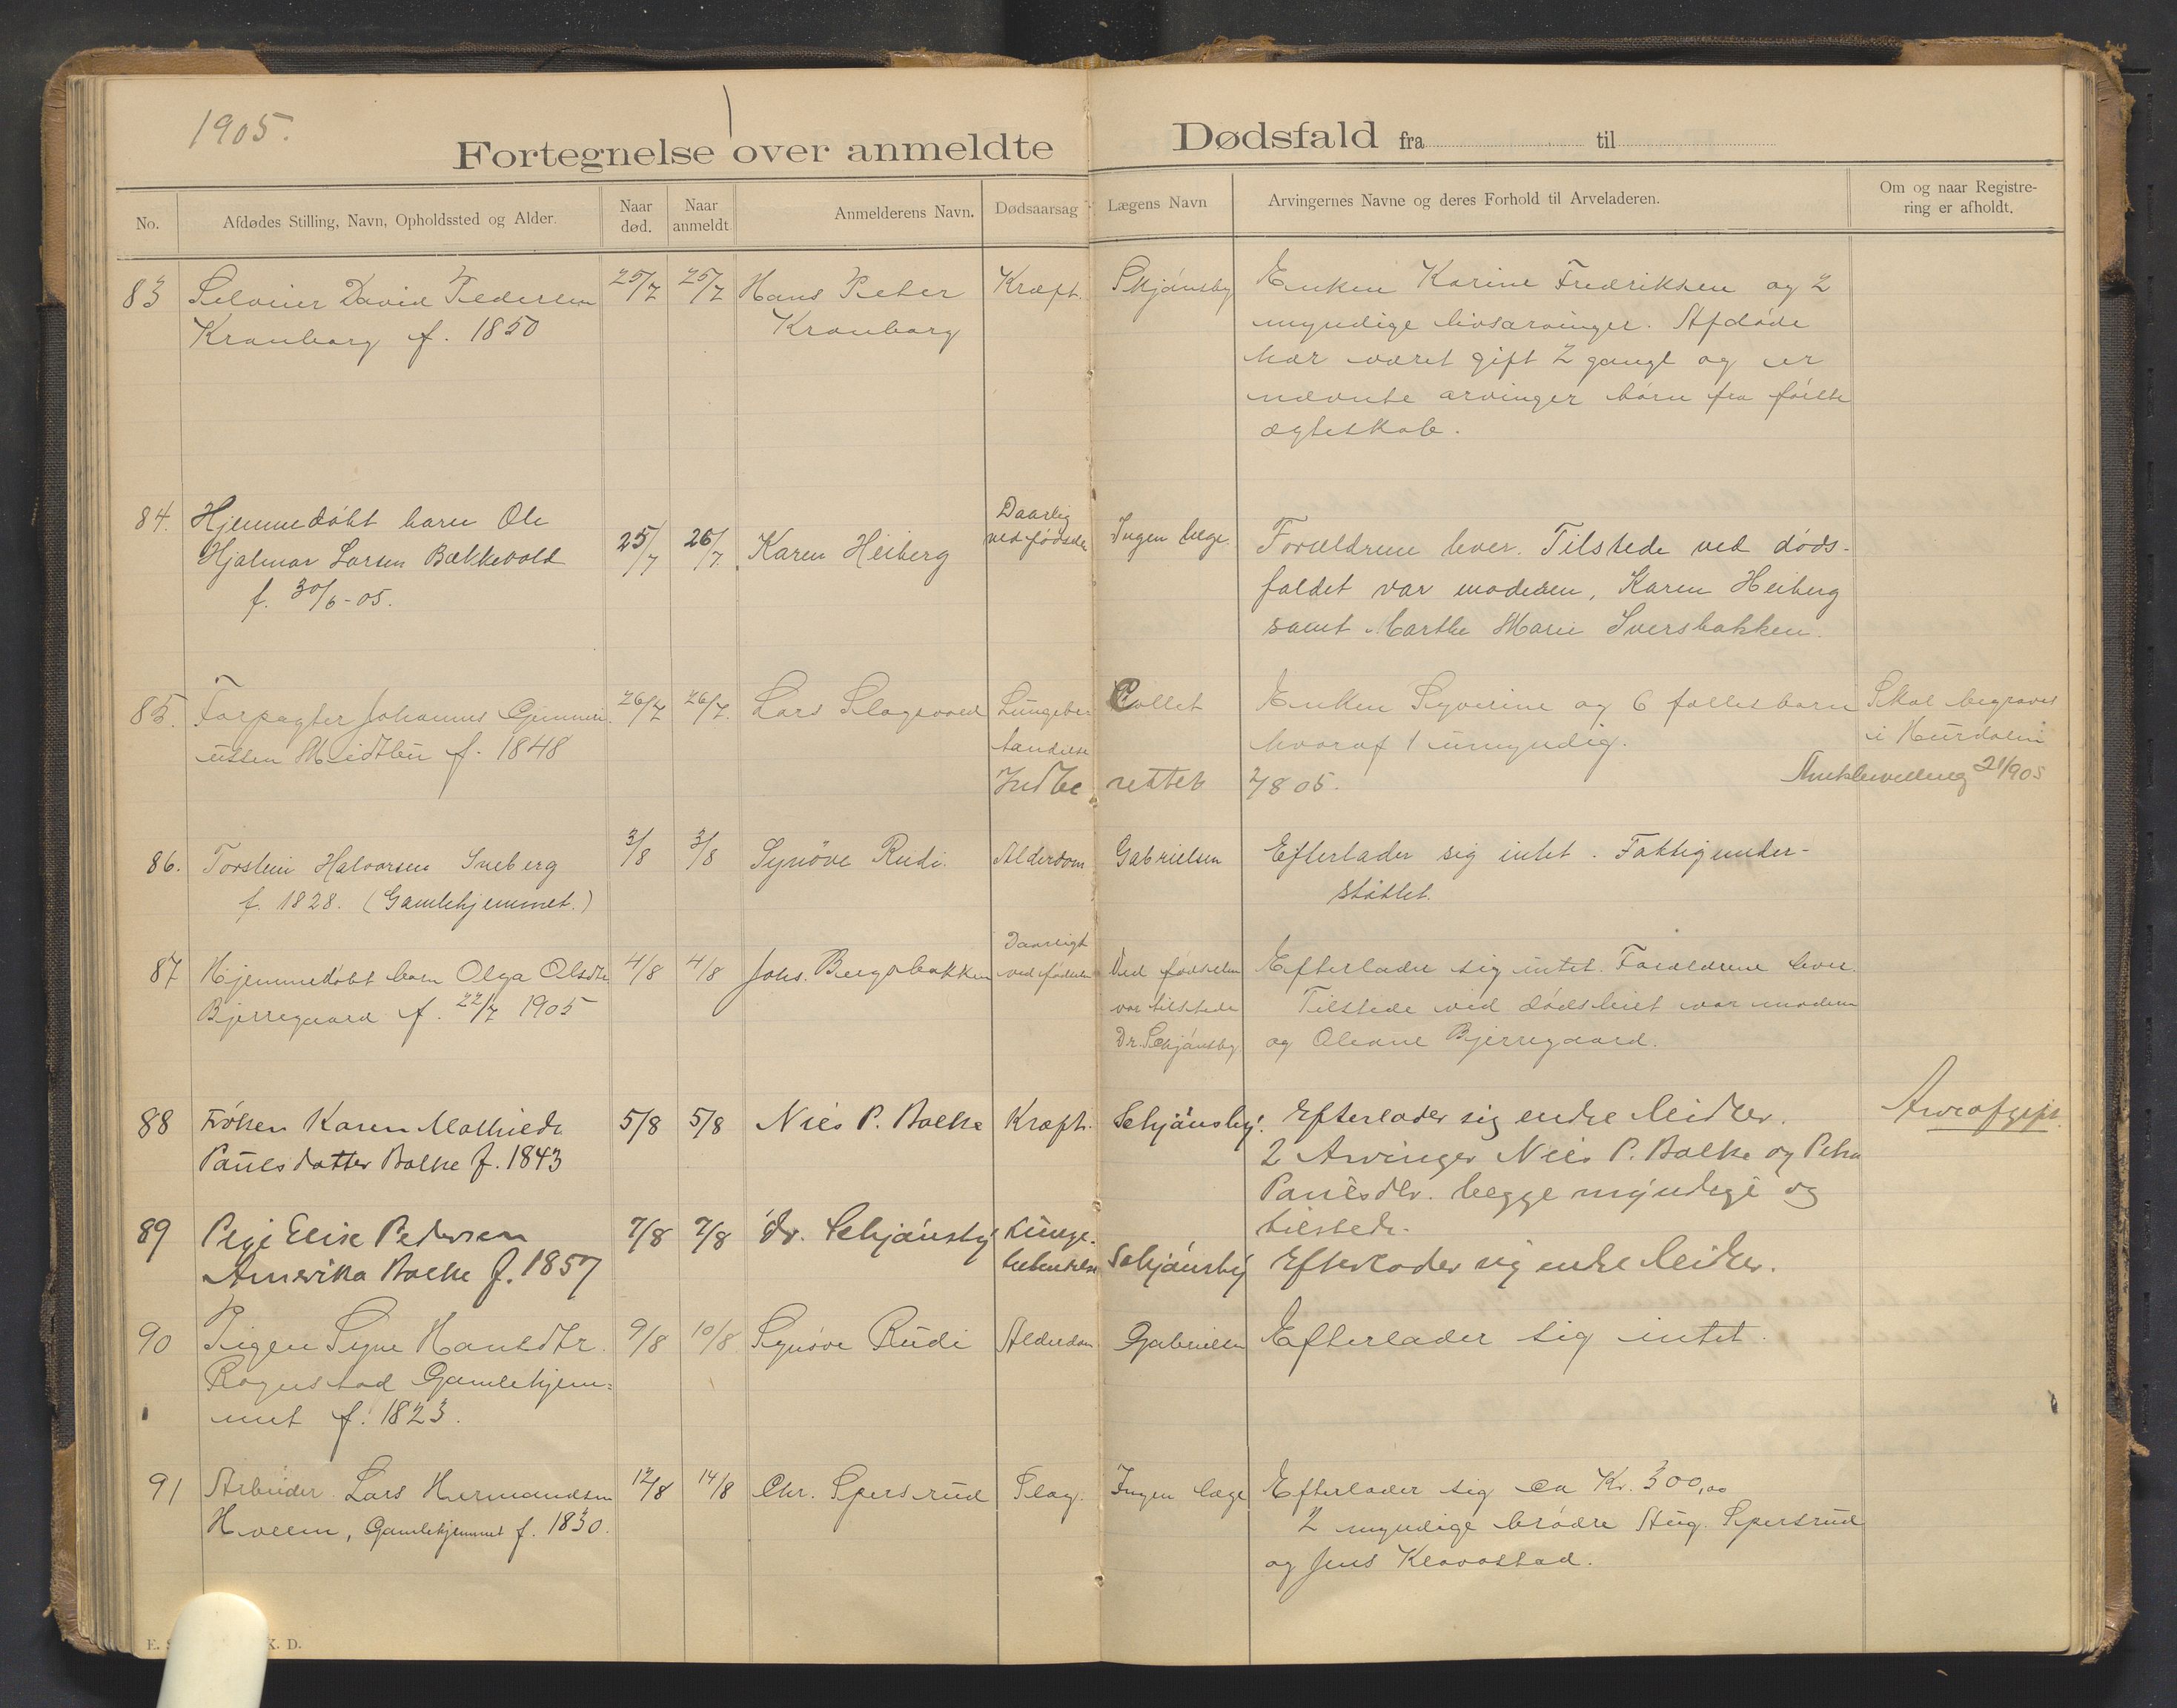 1905.
Fortegnelse over anmeldte Dødsfald fra til
No. Afdødes Stilling, Navn, Opholdssted og Alder. Naar død. Naar anmeldt. Anmelderens Navn. Dødsaarsag Lægens Navn Arvingernes Navne og deres Forhold til Arveladeren. Om og naar Registrering er afholdt.
83 David Pedersen 25/7 25/7 Hans Peter Kræft. Skjånsby Enken Karine Fredriksen og 2
Kronborg f. 1850 Kronborg myndige livsarvinger. Afdøde
har været gift 2 gange og er
nævnte arvinger børn fra første
ægteskab.
84. Hjemmedøbt barn Ole Daarlig
Hjalmar Larsen Bækkevold 25/7 26/7. Karen Heiberg ved fødsele Ingen læge. Forældrene lever. Tilstede ved døds-
f. 30/6-05. faldet var moderen, Karen Heiberg
samt Marthe Marie Iversbakken.
85. Forpagter Johannes Gunneri 26/7 26/7. Lars Slagsvold Lungebe Collet Enken Syverine og 6 fællesbarn Skal begraves
ussen Midtbu f. 1848 tændelse hvoraf 1 umyndig. i Hurdalen
Indbe rettet 2/8 05. 21/905
86. Torstein Halvorsen Sneberg 3/8 3/8 Synøve Rudi. Alderdom Gabrielsen Efterlader sig intet. Fattigunder-
f. 1828. (Gamlehjemmet.) støttet.
87 Hjemmedøbt barn Olga Olsdtr 4/8 4/8 Johs. Bergsbakken Daarligt ved fødselen Ved fødselen Efterlader sig intet. Forældrene lever.
Bjerregaard f. 22/7 1905 var tilstede Tilstede ved dødsleiet var moderen
Dr. Schjånsby. og Oleane Bjerregaard.
88 Frøken Karen Mathilde 5/8 5/8 Nils P. Balke Kræft. Schjånsby. Efterlader sig endel Midler. Arveafgift.
Paulsdatter Balke f. 1843 2 Arvinger Nils P. Balke og Petra
Paulsdtr. begge myndige og
tilstede.
89 Pige Elise Pedersen 7/8 7/8 dr. Schjånsby Lunge-
Amerika Balke f. 1857 Schjånsby Efterlader sig endel Midler.
90 Pigen Syne Hansdtr. 9/8 10/8 Synøve Rudi Alderdom Gabrielsen Efterlader sig intet.
Rognstad Gamlehjem=
met f. 1823.
91 Arbeider Lars Hermandsen 12/8 14/8 Chr. Spersrud Slag. Ingen læge Efterlader sig ca Kr. 300,00
Hveem, Gamlehjemmet f. 1830. 2 myndige brødre Aug. Spersrud
og Jens Klovstad.